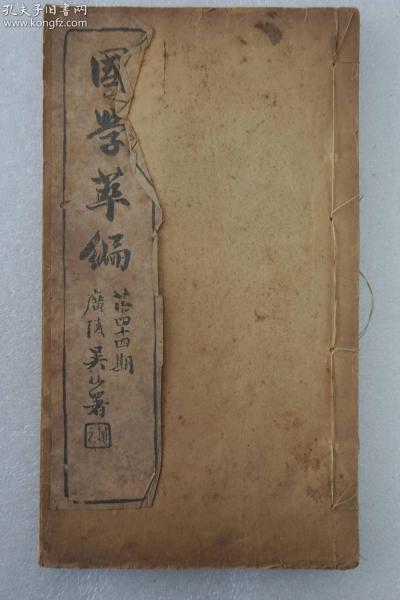 孔夫子旧书网
www.kongfz.com
國學萃編
第四十四期
廣陵吳山署